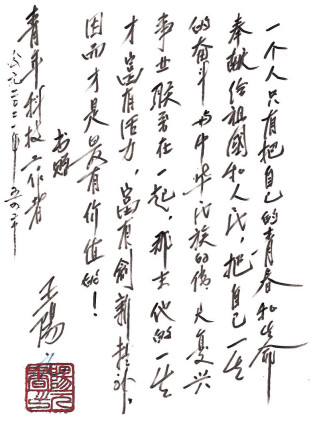 一个人只有把自己的青春和生命
奉献给祖国和人民，把自己一生
的奋斗与中华民族的伟大复兴
事业联系在一起，那末他的一生
才富有活力，富有创新精神，
因而才是最有价值的！
书赠
青年科技工作者
公元二〇二一年五四节
王阳元